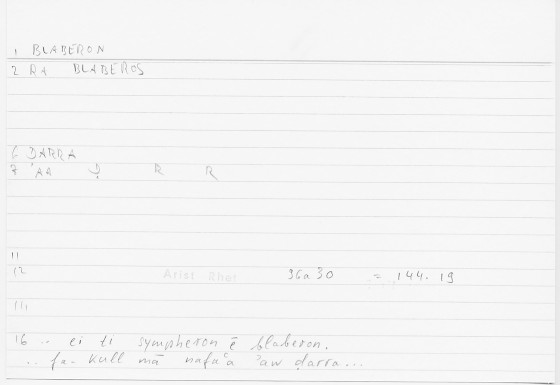 1 BLABERON
2 RA BLABEROS
6 ḌARRA
7 AA Ḍ R R
11
12 Arist Rhet 96a 30 = 144.19
16 .. ei ti sympheron ē blaberon.
.. fa- kull mā nafaʿa ʾaw ḍarra...